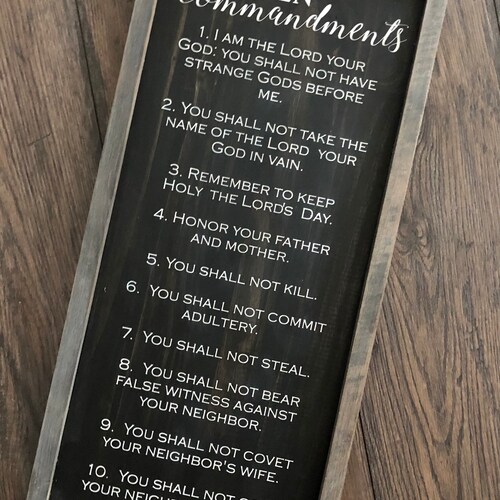 Commandments
1. I am the Lord your
God; you shall not have
strange Gods before
me.
2. You shall not take the
name of the Lord your
God in vain.
3. Remember to keep
Holy the Lord's Day.
4. Honor your father
and mother.
5. You shall not kill.
6. You shall not commit
adultery.
7. You shall not steal.
8. You shall not bear
false witness against
your neighbor.
9. You shall not covet
your neighbor's wife.
10. You shall not
your